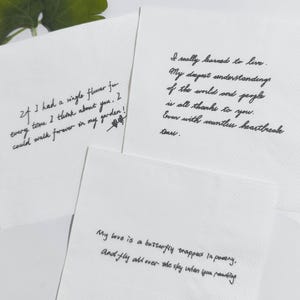 If I had a single flower for
every time I think about you, I
could walk forever in my garden!
I really learned to live.
My deepest understanding
of the world and people
is all thanks to you.
Even with countless heartbreak
tears.
My love is a butterfly trapped in poems,
And fly all over the sky when you reading